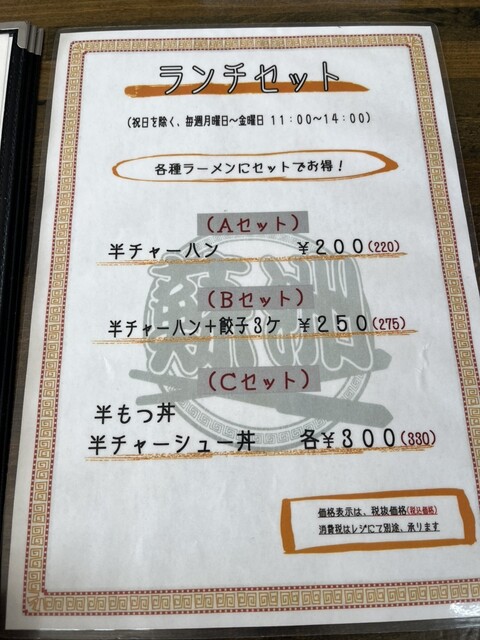 ランチセット
(祝日を除く、毎週月曜日～金曜日 11:00～14:00)
各種ラーメンにセットでお得！
(Aセット)
半チャーハン ￥200(220)
(Bセット)
半チャーハン+餃子3ケ ￥250(275)
(Cセット)
半もつ丼
半チャーシュー丼 各￥300(330)
価格表示は、税抜価格(税込価格)
消費税はレジにて別途、承ります